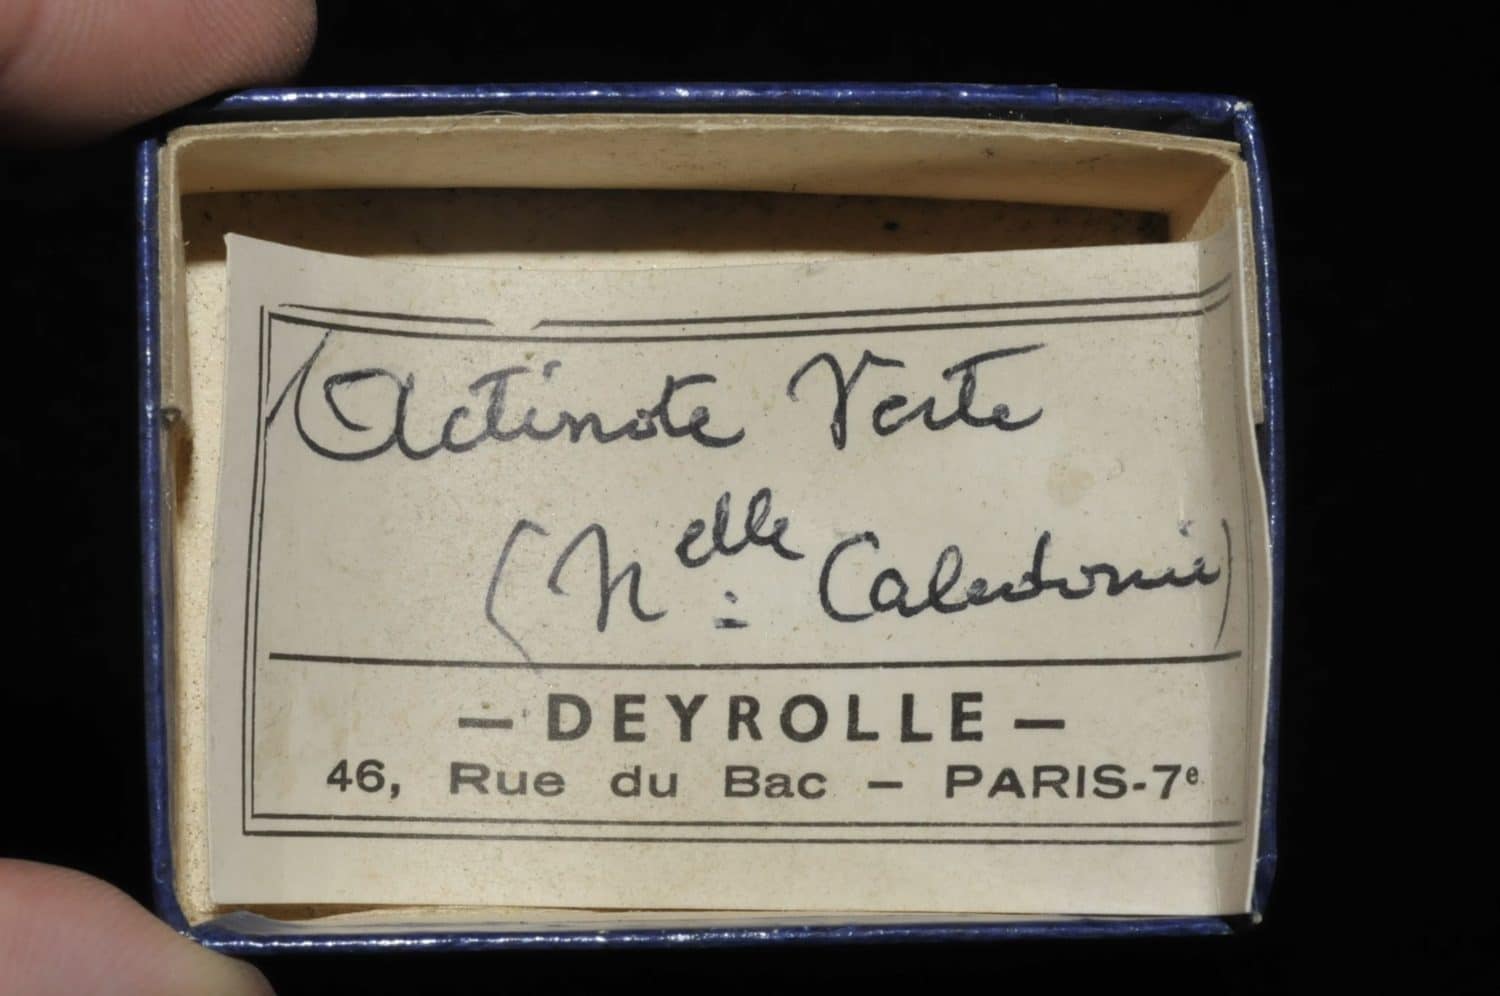 Actinote Verte
(Nelle Caledonie)
— DEYROLLE —
46, Rue du Bac — PARIS-7e